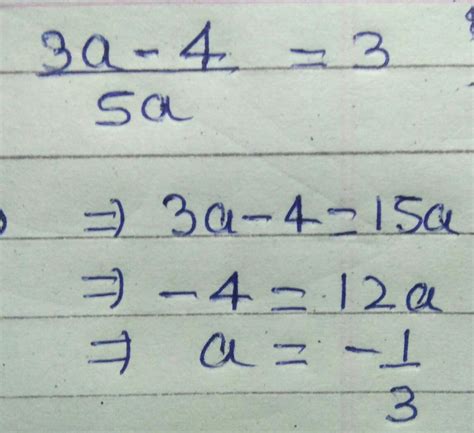 3a - 4 / 5a = 3
⇒ 3a - 4 = 15a
⇒ - 4 = 12a
⇒ a = - 1/3